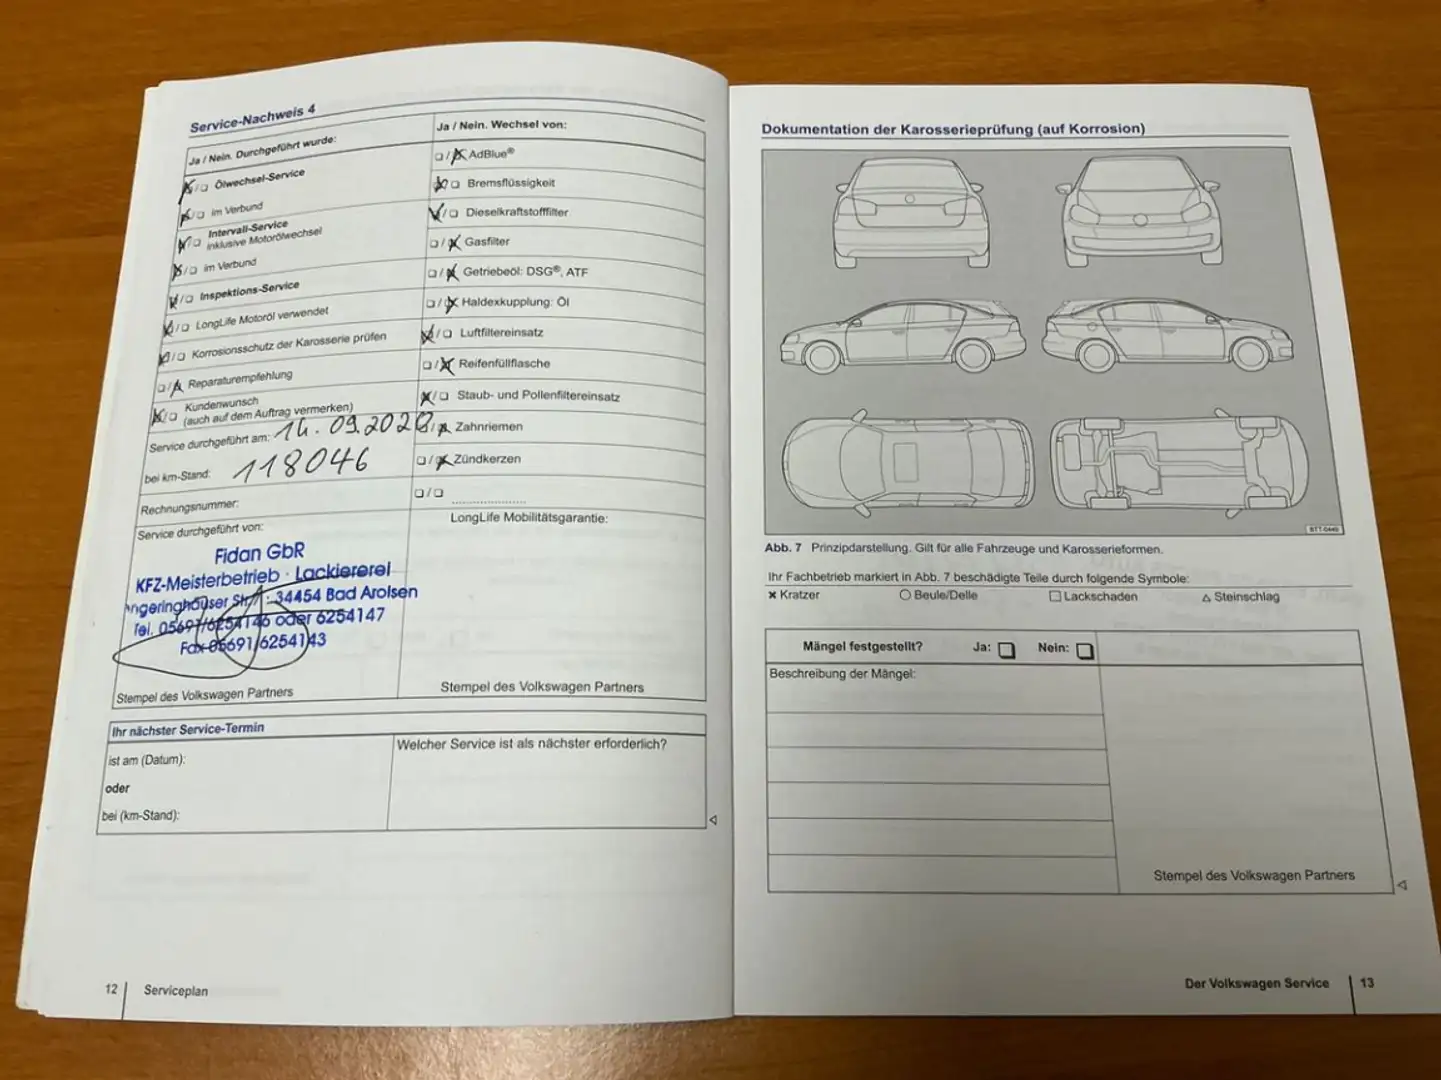 Service-Nachweis 4
Ja / Nein. Durchgeführt wurde:
Ölwechsel-Service
im Verbund
Intervall-Service
inklusive Motorölwechsel
im Verbund
Inspektions-Service
LongLife Motoröl verwendet
Korrosionsschutz der Karosserie prüfen
Reparaturempfehlung
Kundenwunsch
(auch auf dem Auftrag vermerken)
Service durchgeführt am: 14.09.2020
bei km-Stand: 118046
Rechnungsnummer:
Service durchgeführt von:
Fidan GbR
KFZ-Meisterbetrieb · Lackiererei
34454 Bad Arolsen
Tel. 05691/6254146 oder 6254147
Fax 05691/6254143
Stempel des Volkswagen Partners
Ja / Nein. Wechsel von:
AdBlue®
Bremsflüssigkeit
Dieselkraftstofffilter
Gasfilter
Getriebeöl: DSG®, ATF
Haldexkupplung: Öl
Luftfiltereinsatz
Reifenfüllflasche
Staub- und Pollenfiltereinsatz
Zahnriemen
Zündkerzen
LongLife Mobilitätsgarantie:
Stempel des Volkswagen Partners
Ihr nächster Service-Termin
ist am (Datum):
oder
bei (km-Stand):
Welcher Service ist als nächster erforderlich?
12 Serviceplan
Dokumentation der Karosserieprüfung (auf Korrosion)
Abb. 7 Prinzipdarstellung. Gilt für alle Fahrzeuge und Karosserieformen.
Ihr Fachbetrieb markiert in Abb. 7 beschädigte Teile durch folgende Symbole:
Kratzer Beule/Delle Lackschaden Steinschlag
Mängel festgestellt? Ja: Nein:
Beschreibung der Mängel:
Stempel des Volkswagen Partners
Der Volkswagen Service 13